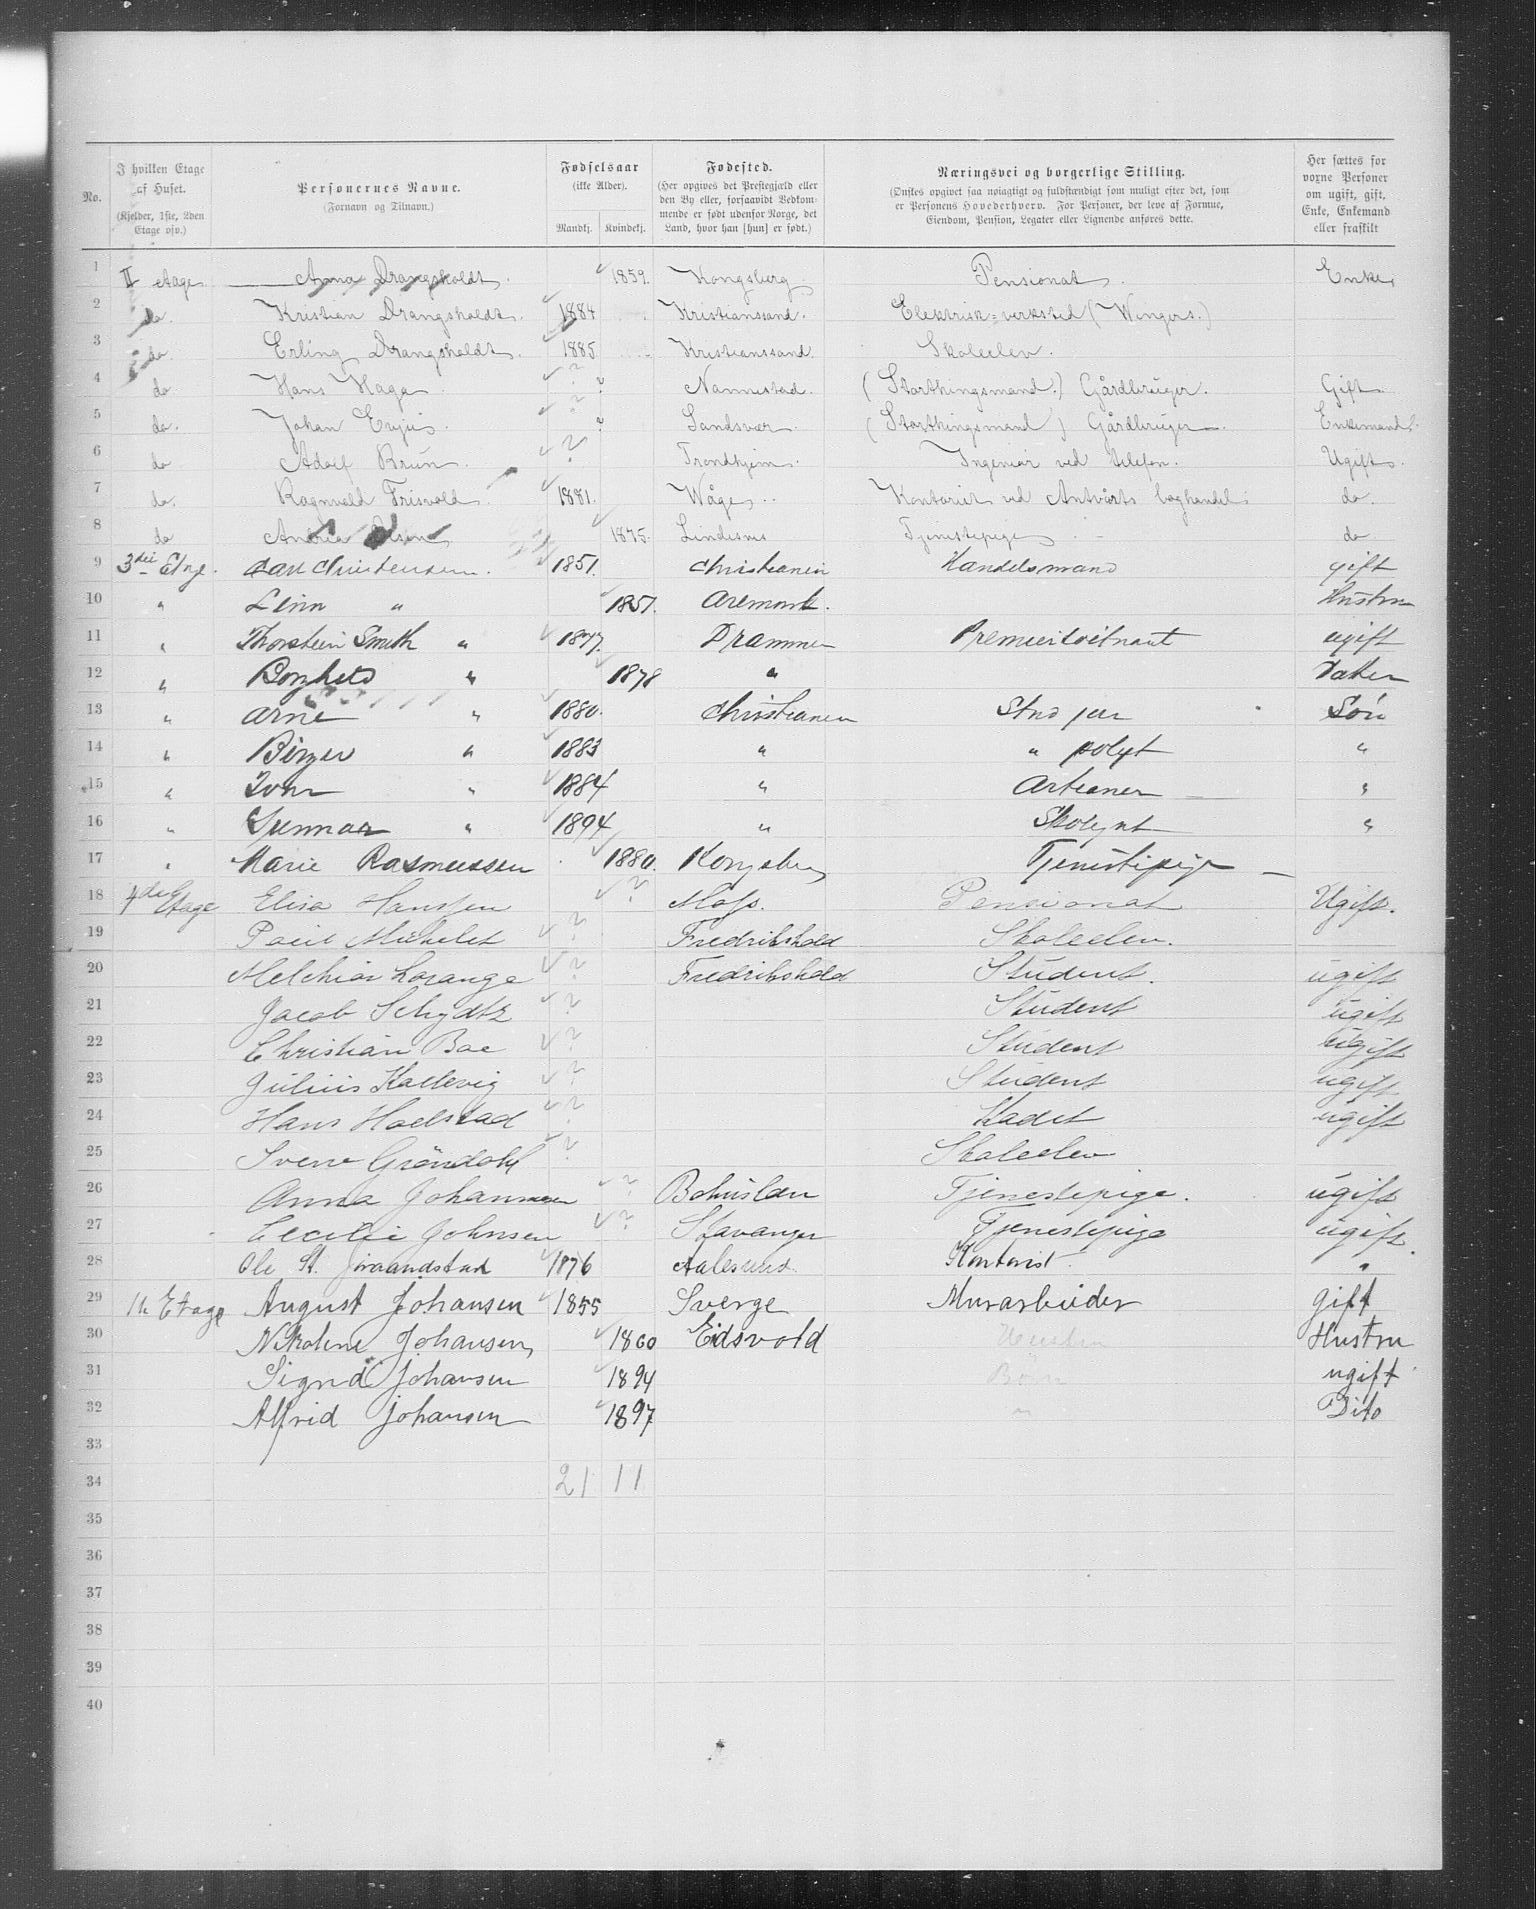 No.
I hvilken Etage af Huset. (Kjelder, 1ste, 2den Etage osv.)
Personernes Navne. (Fornavn og Tilnavn.)
Fødselsaar (ikke Alder). Mandkj. Kvindekj.
Fødested. (Her opgives det Prestegjæld eller den By eller, forsaavidt Vedkommende er født udenfor Norge, det Land, hvor han [hun] er født.)
Næringsvei og borgerlige Stilling. (Ønskes opgivet saa nøiagtigt og fuldstændigt som muligt efter det, som er Personens Hovederhverv. For Personer, der leve af Formue, Eiendom, Pension, Legater eller Lignende anføres dette.)
Her sættes for voxne Personer om ugift, gift, Enke, Enkemand eller fraskilt
1 II Etage Anna Drangsholdt. 1859. Kongsberg Pensionat. Enke
2 do. Kristian Drangsholdt. 1884 Kristianssand. Elektrisk-verksted (Wingers.)
3 do. Erling Drangsholdt. 1885. Kristianssand. Skoleelev.
4 do. Hans Haga ? ? Nannestad. (Storthingsmand.) Gårdbruger. Gift.
5 do. Johan Evju ? ? Sandsvær. (Storthingsmand) Gårdbruger. Enkemand?
6 do Adolf Brun. ? Trondhjem. Ingeniør ved telefon. Ugift.
7 do. Ragnvald Frisvold. 1881. Wåge. Kontorist ved boghandel. do.
8 do Andrea Olsen 1875. Lindesnes Tjenestepige. do.
9 3die Etage. Carl Christensen. 1851. Christiania Handelsmand gift
10 " Linn " 1857. Aremark. Hustru
11 " Thorstein Smith " 1877. Drammen Premierløitnant ugift
12 " Borghild " 1878 " Datter
13 " Arne " 1880. Christiania Stud jur Søn
14 " Birger " 1883 " " polyt "
15 " Ivar " 1884 " Artianer "
16 " Gunnar " 1894 " "
17 " Marie Rasmussen 1880. Kongsberg Tjenestepige
18 4de Etage Elisa Hanssen ? Moss. Pensionat Ugift.
19 Poul Michelet ? Fredrikshald Skoleelev.
20 Melchior Lorange ? Fredrikshald Student. ugift
21 Jacob Schydtz ? Student ugift
22 Christian Boe ? Student ugift
23 Julius Kallevig ? Student ugift
24 Hans Hoelstad ? Kadet ugift
25 Svenn Gröndahl ? Skoleelev
26 Anna Johannsen ? Bohuslen Tjenestepige. ugift
27 Cecilie Johnsen ? Stavanger Tjenestepige ugift.
28 Ole St. 1876 Aalesund. Kontorist. "
29 1ste Etage August Johansen 1855 Sverge Murarbeider gift
30 Nikoline Johansen, 1860 Eidsvold Hustru
31 Sigrid Johansen 1894 Børn ugift
32 Alfrid Johansen 1897 " Dito
33
34 21 11
35
36
37
38
39
40